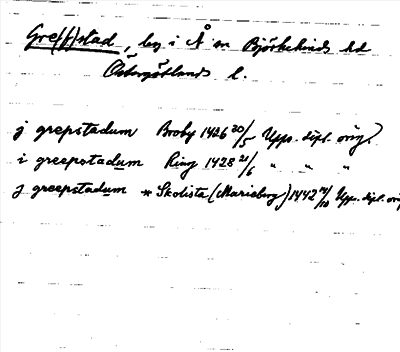 Gre(f)stad, by i Å sn Björkekinds hd
Östergötlands l.
j grepstadum Broby 1426 20/5 Upps. dipl. orig.
i greepstadum Ring 1428 21/6 " " "
j greepstadum * Skolista (Marieberg) 1442 14/10 Upps. dipl. orig